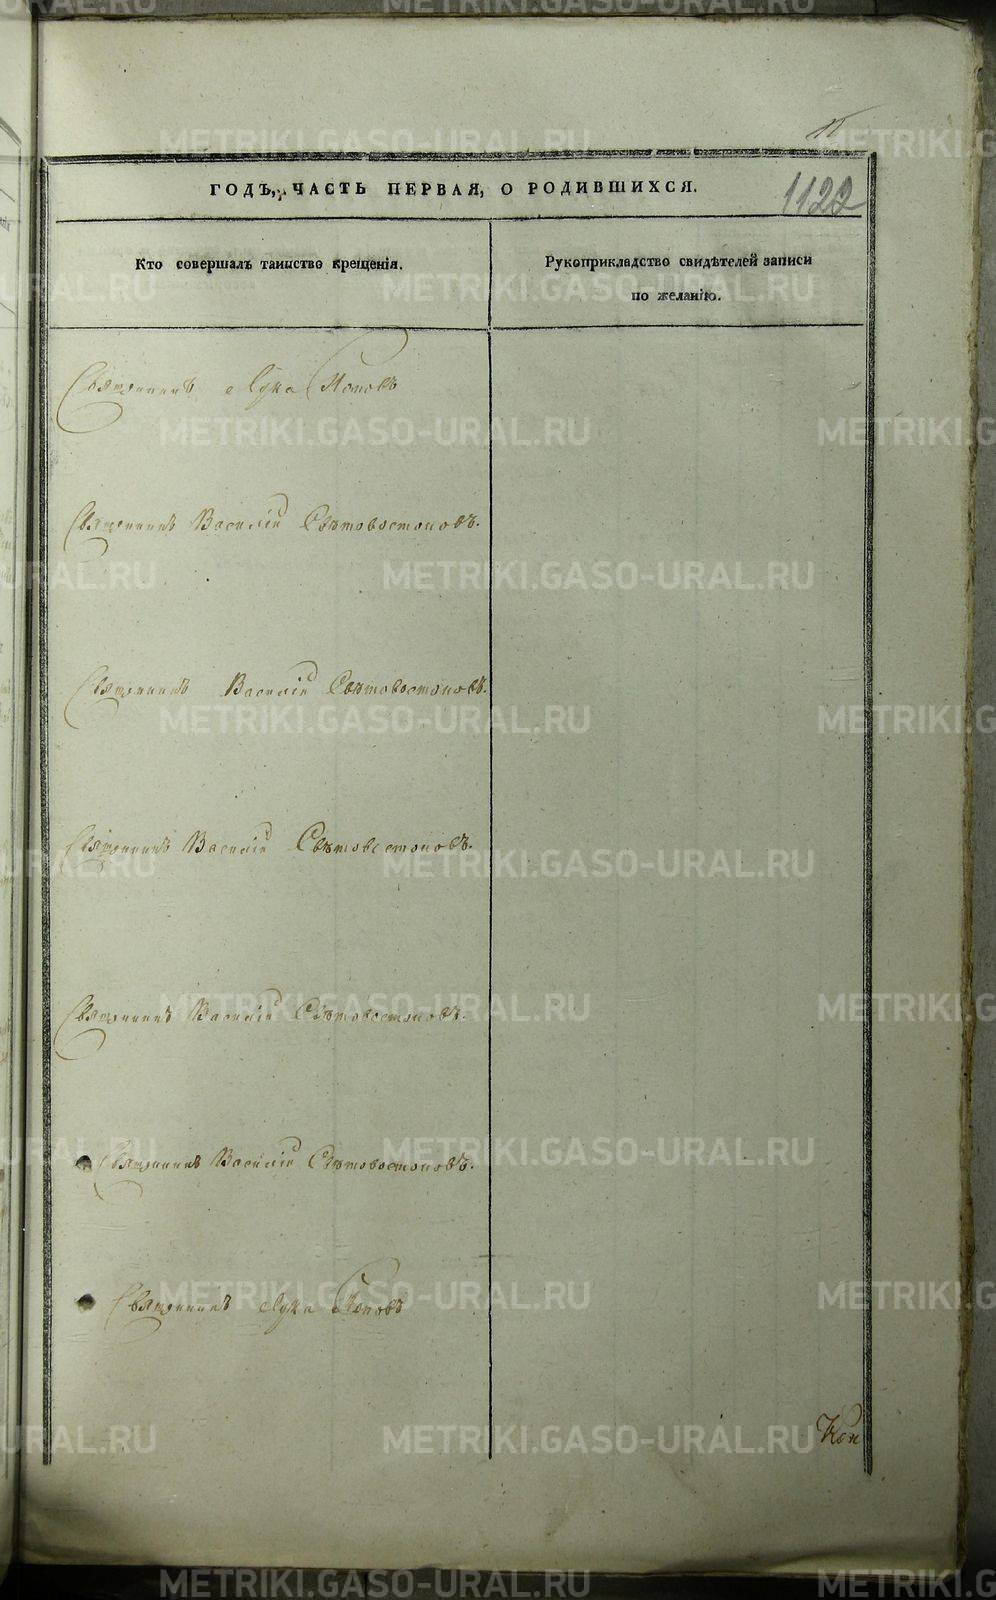 1122
ГОДЪ, ЧАСТЬ ПЕРВАЯ, О РОДИВШИХСЯ.
Кто совершалъ таинство крещенія.
Рукоприкладство свидѣтелей записи
по желанію.
Священникъ Лука Поповъ
Священникъ Василій Свѣтовостоковъ.
Священникъ Василій Свѣтовостоковъ.
Священникъ Василій Свѣтовостоковъ.
Священникъ Василій Свѣтовостоковъ.
Священникъ Василій Свѣтовостоковъ.
Священникъ Лука Поповъ
METRIKI.GASO-URAL.RU